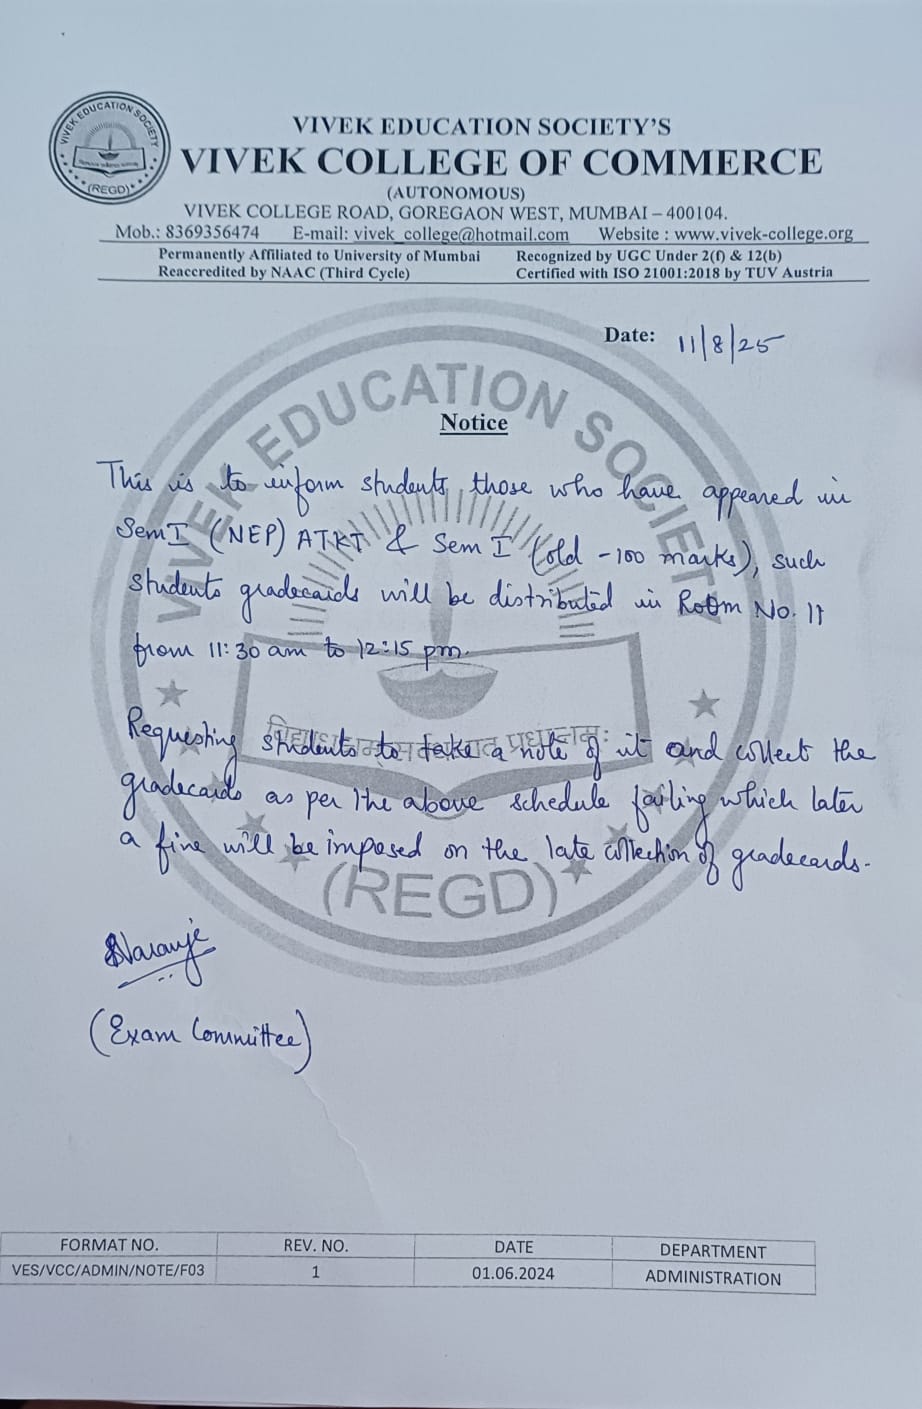 VIVEK EDUCATION SOCIETY
(REGD)
VIVEK EDUCATION SOCIETY'S
VIVEK COLLEGE OF COMMERCE
(AUTONOMOUS)
VIVEK COLLEGE ROAD, GOREGAON WEST, MUMBAI – 400104.
Mob.: 8369356474 E-mail: vivek_college@hotmail.com Website : www.vivek-college.org
Permanently Affiliated to University of Mumbai Recognized by UGC Under 2(f) & 12(b)
Reaccredited by NAAC (Third Cycle) Certified with ISO 21001:2018 by TUV Austria
Date: 11/8/25
VIVEK EDUCATION SOCIETY
Notice
This is to inform students, those who have appeared in
Sem I (NEP) ATKT & Sem I (old - 100 marks), such
students gradecards will be distributed in Room No. 11
from 11:30 am to 12:15 pm.
Requesting students to take a note of it and collect the
gradecards as per the above schedule failing which later
a fine will be imposed on the late collection of gradecards.
(REGD)
(Exam Committee)
FORMAT NO. REV. NO. DATE DEPARTMENT
VES/VCC/ADMIN/NOTE/F03 1 01.06.2024 ADMINISTRATION